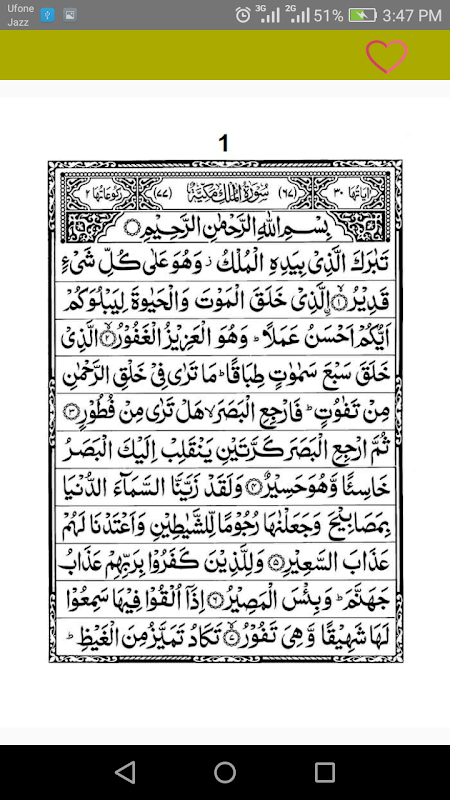 Ufone
Jazz
3G 2G 51% 3:47 PM
1
اٰیَاتُهَا ۳۰ (۶۷) سُوْرَةُ الْمُلْكِ مَكِّیَّةٌ (۷۷) رُكُوْعَاتُهَا ۲
بِسْمِ اللّٰهِ الرَّحْمٰنِ الرَّحِیْمِ
تَبٰرَكَ الَّذِیْ بِیَدِهِ الْمُلْكُ ز وَهُوَ عَلٰی كُلِّ شَیْءٍ
قَدِیْرُ ۨ ۝۱ الَّذِیْ خَلَقَ الْمَوْتَ وَالْحَیٰوةَ لِیَبْلُوَكُمْ
اَیُّكُمْ اَحْسَنُ عَمَلًا ؕ وَهُوَ الْعَزِیْزُ الْغَفُوْرُ ۝۲ الَّذِیْ
خَلَقَ سَبْعَ سَمٰوٰتٍ طِبَاقًا ؕ مَا تَرٰی فِیْ خَلْقِ الرَّحْمٰنِ
مِنْ تَفٰوُتٍ ؕ فَارْجِعِ الْبَصَرَ ۙ هَلْ تَرٰی مِنْ فُطُوْرٍ ۝۳
ثُمَّ ارْجِعِ الْبَصَرَ كَرَّتَیْنِ یَنْقَلِبْ اِلَیْكَ الْبَصَرُ
خَاسِئًا وَّهُوَ حَسِیْرٌ ۝۴ وَلَقَدْ زَیَّنَّا السَّمَآءَ الدُّنْیَا
بِمَصَابِیْحَ وَجَعَلْنٰهَا رُجُوْمًا لِّلشَّیٰطِیْنِ وَاَعْتَدْنَا لَهُمْ
عَذَابَ السَّعِیْرِ ۝۵ وَلِلَّذِیْنَ كَفَرُوْا بِرَبِّهِمْ عَذَابُ
جَهَنَّمَ ؕ وَبِئْسَ الْمَصِیْرُ ۝۶ اِذَاۤ اُلْقُوْا فِیْهَا سَمِعُوْا
لَهَا شَهِیْقًا وَّهِیَ تَفُوْرُ ۝۷ تَكَادُ تَمَیَّزُ مِنَ الْغَیْظِ ؕ